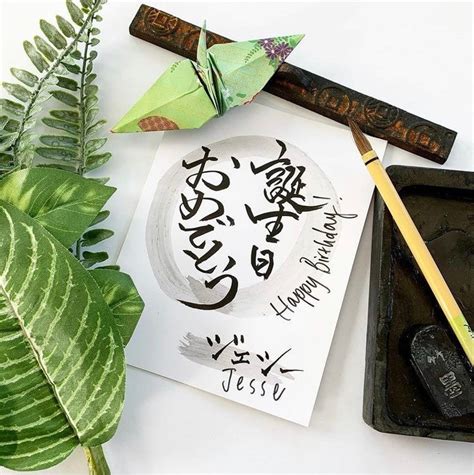 誕生日
おめでとう
Happy Birthday!
ジェシー
Jesse